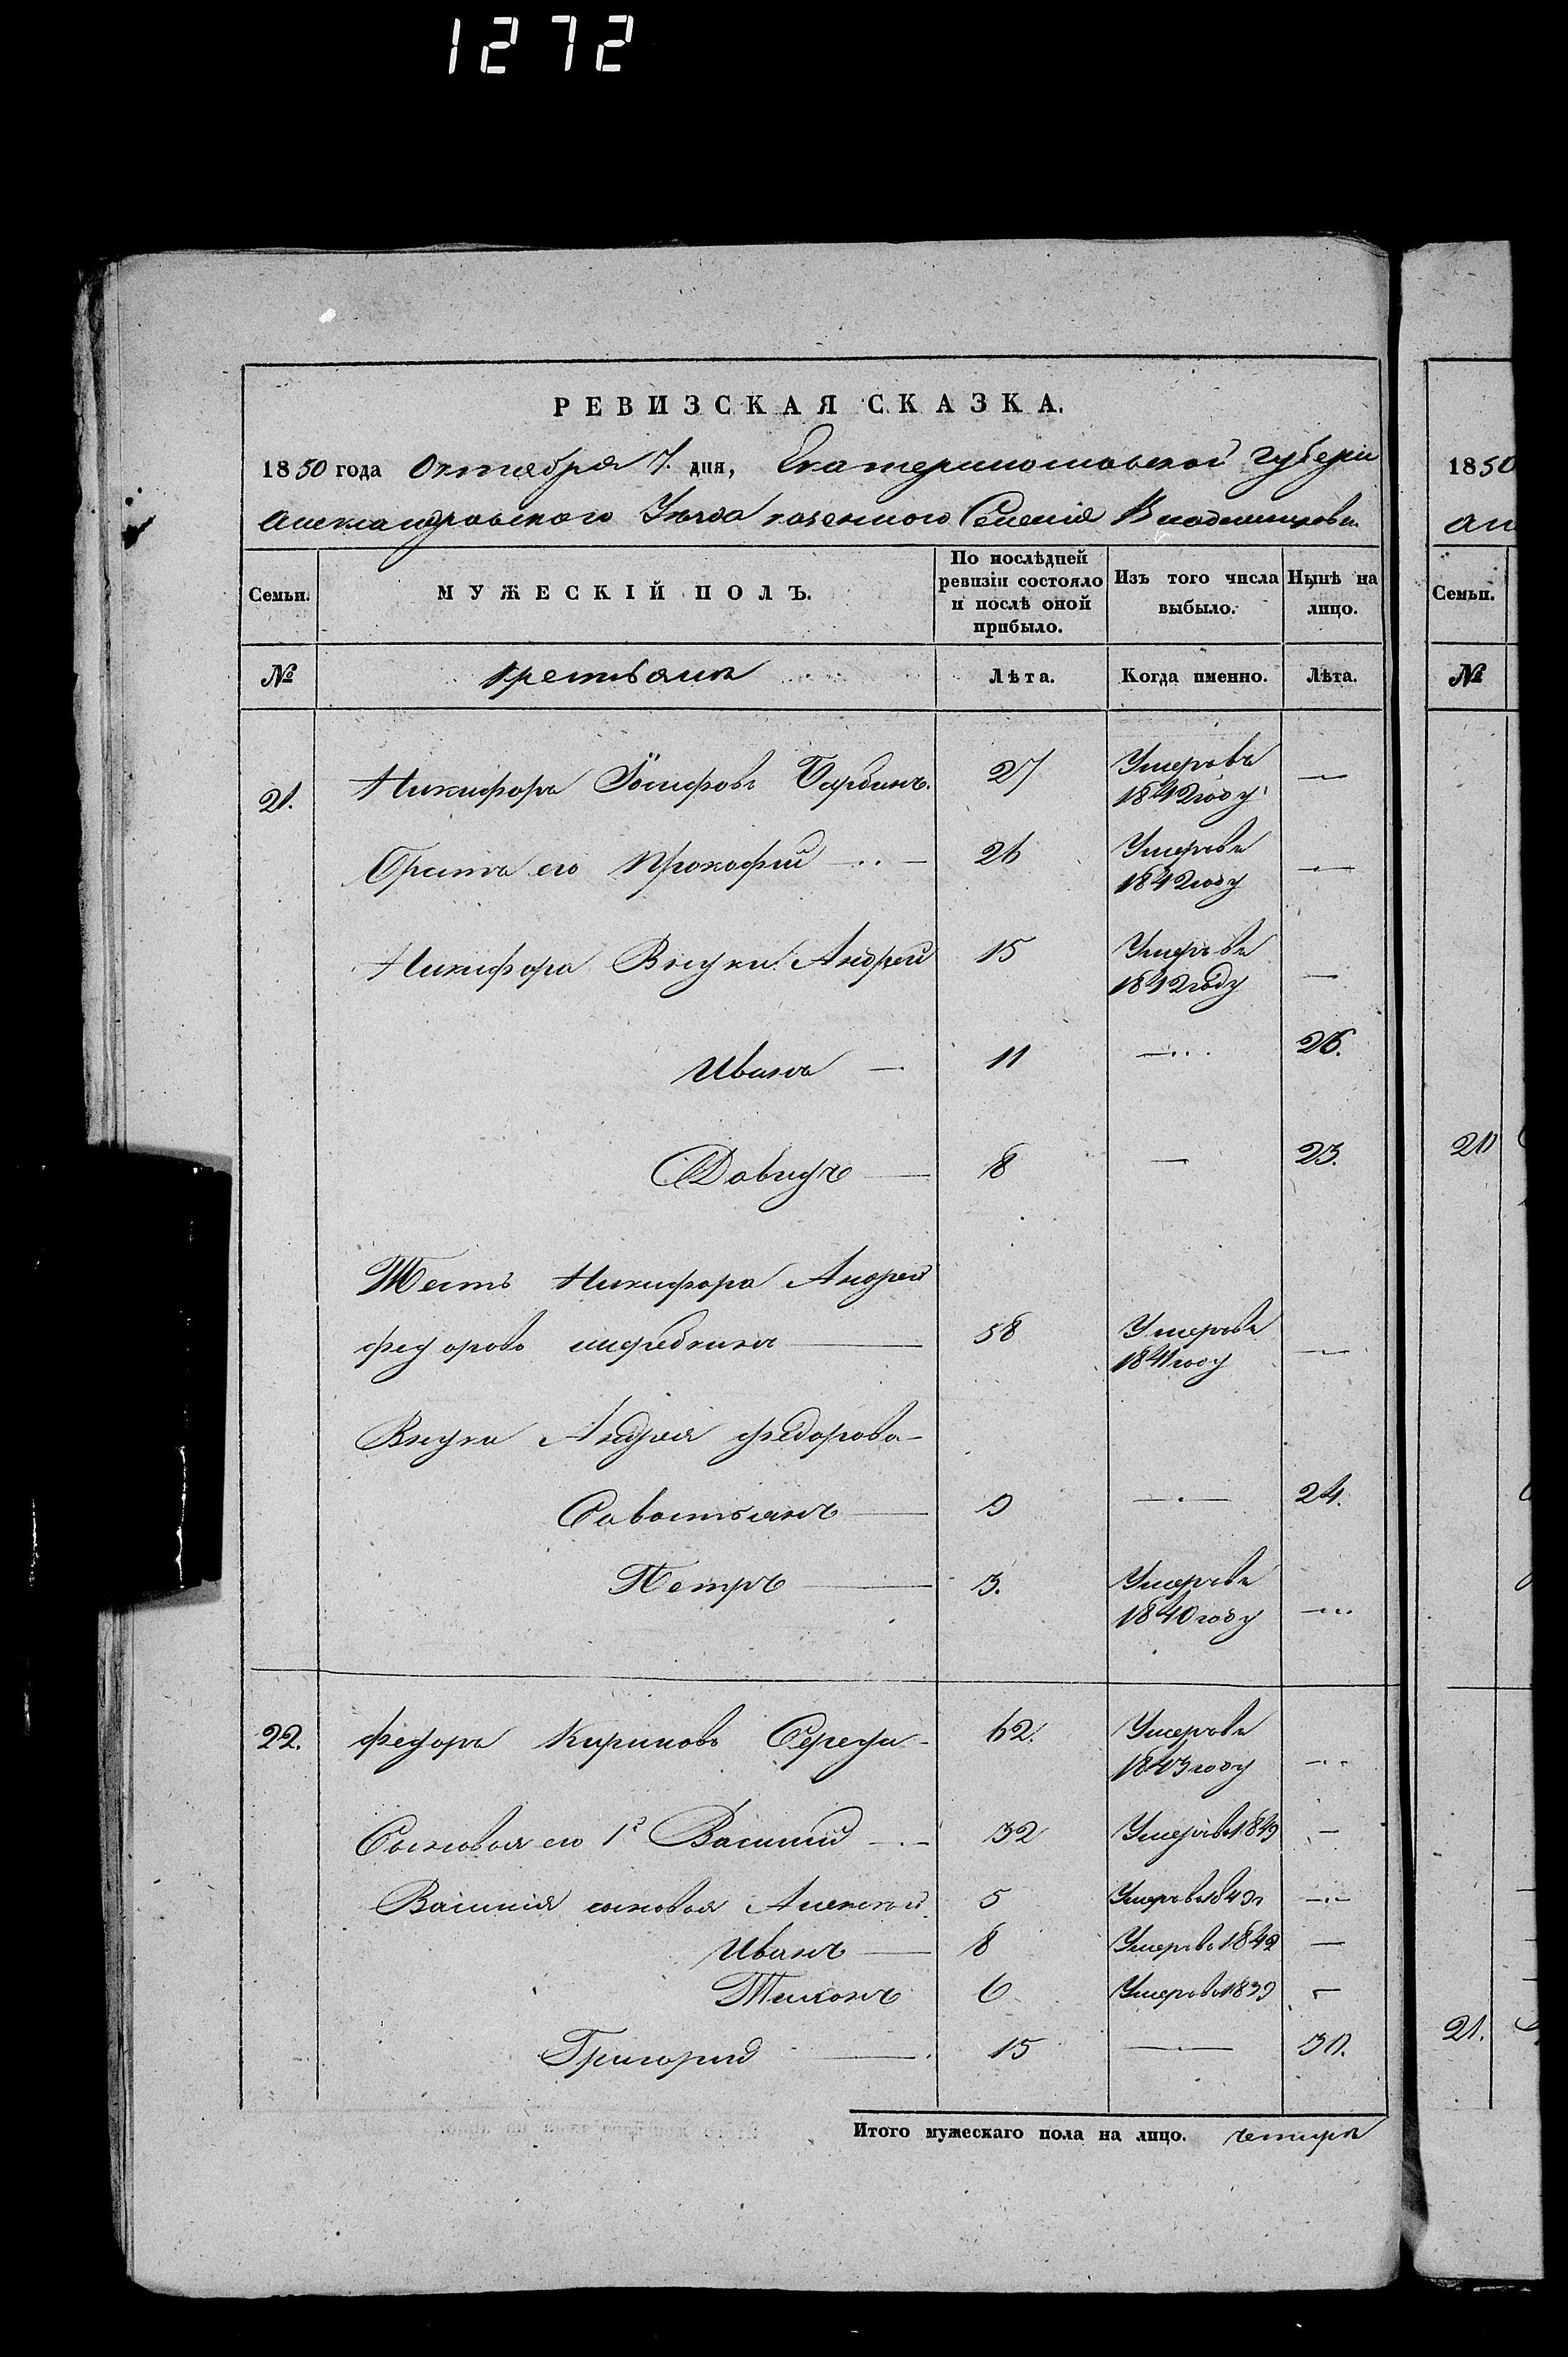 1272
РЕВИЗСКАЯ СКАЗКА.
1850 года Октября 7. дня, Екатеринославской Губерніи
Александровскаго Уезда казенного Селенія
Семьи. МУЖЕСКІЙ ПОЛЪ. По послѣдней ревизіи состояло и послѣ оной прибыло. Изъ того числа выбыло. Нынѣ на лицо.
№ крестьяне Лѣта. Когда именно. Лѣта.
21. Никифоръ Іосифовъ 27 Умеръ въ 1842 году —
Братъ его Прокофий — 26 Умеръ въ 1842 году —
Никифора Внуки Андрей 15 Умеръ въ 1842 году —
Иванъ — 11 — 26.
Давидъ — 8 — 23.
Тесть Никифора Андрей
Федоровъ 58 Умеръ въ 1841 году —
Внуки Андрея Федорова
Савостьянъ — 9 — 24.
Петръ — 3. Умеръ въ 1840 году —
22. Федоръ Кириловъ Середа 62. Умеръ въ 1843 году —
Сыновья его 1й Василий — 32 Умеръ въ 1849 —
Василия сыновья Алексей 5 Умеръ въ —
Иванъ — 8 Умеръ въ 1842 —
Тихонъ 6 Умеръ въ 1839 —
Григорий — 15 — 30.
Итого мужескаго пола на лицо. четыре
1850
Семьи.
№
20
21.